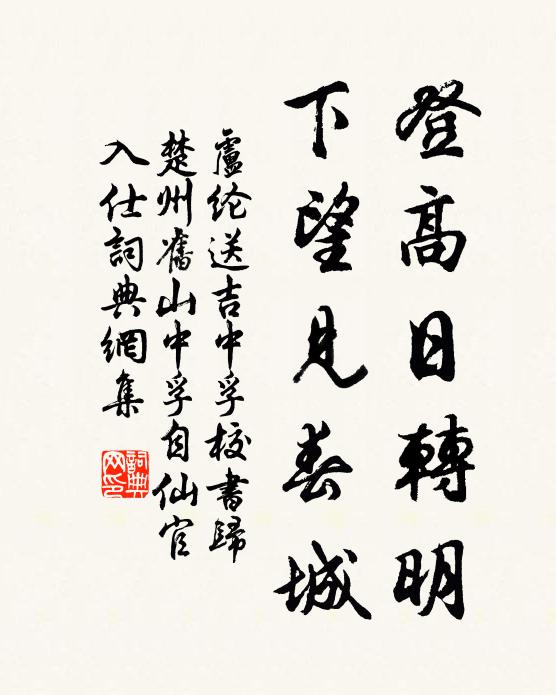 登高日轉明
下望見春城
盧纶送吉中孚校書歸
楚州舊山中孚自仙官
入仕詞典網集
詞典网印